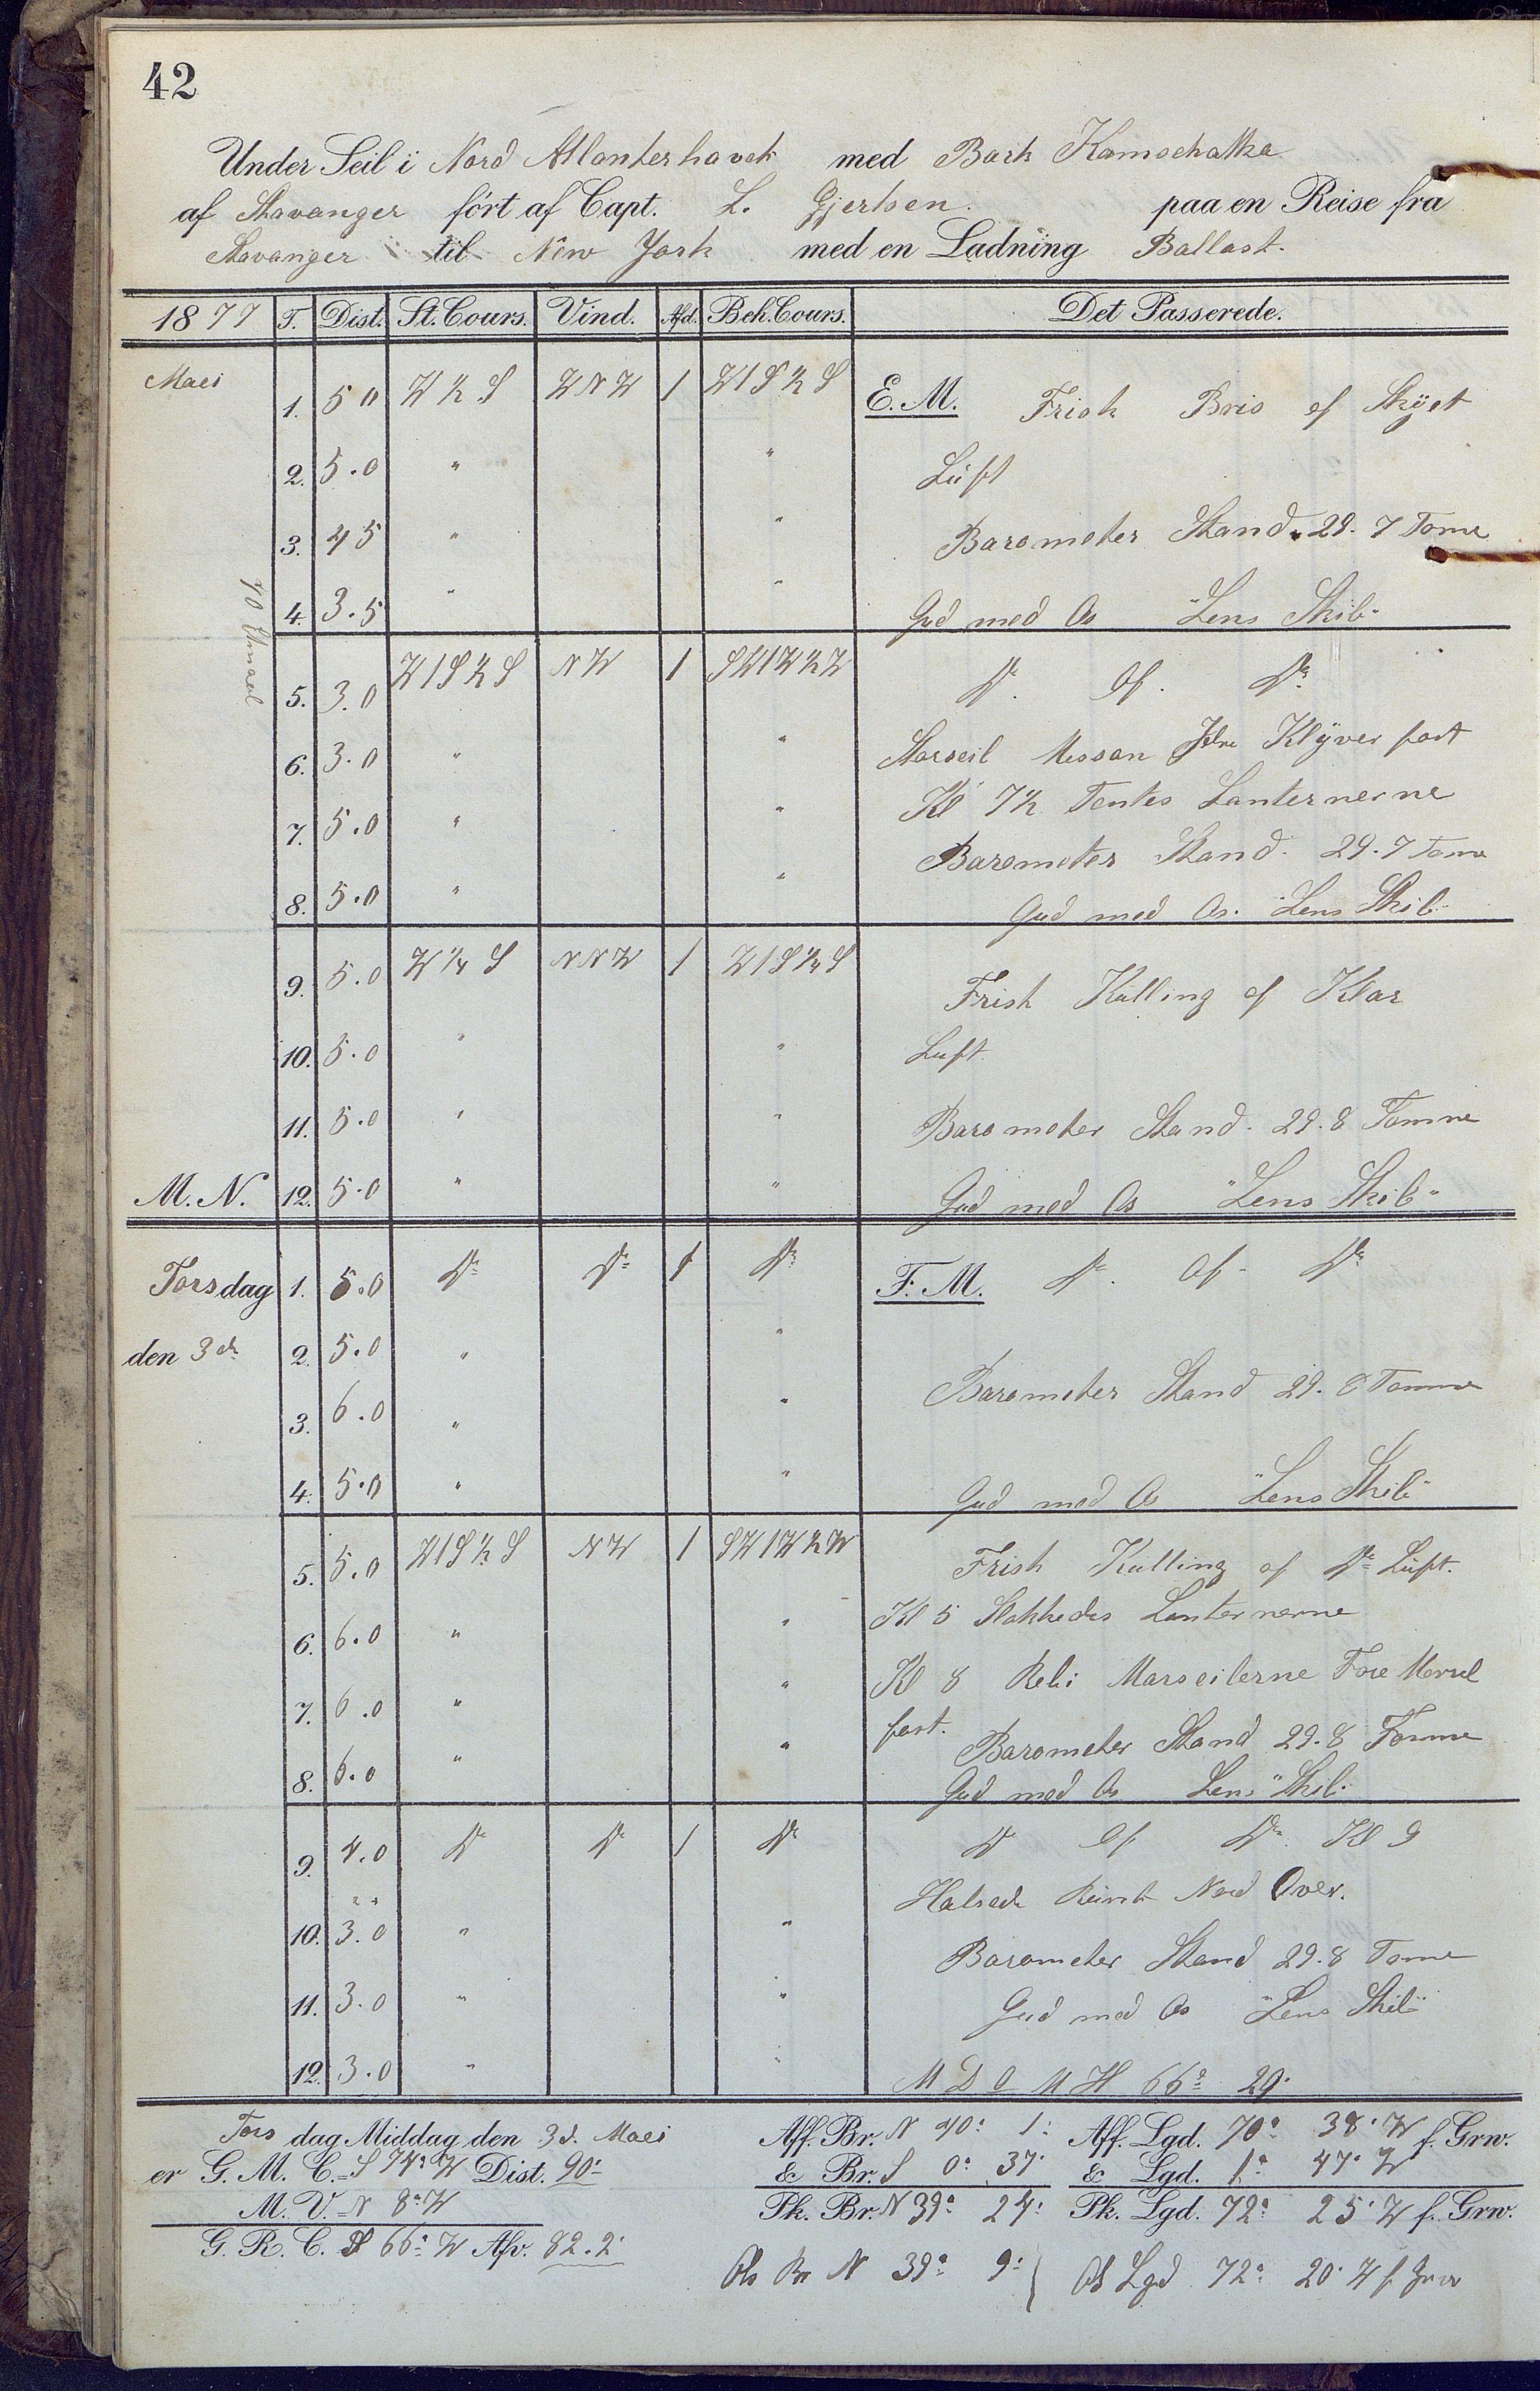 42
Under Seil i Nord Atlanterhavet med Bark Kamschatka
af Stavanger ført af Capt. L. Gjertsen. paa en Reise fra
Stavanger til New York med en Ladning Ballast.
1877 T. Dist. St. Cours. Vind. Afd. Beh. Cours. Det Passerede.
Maei 1. 5 0 W ½ S WNW 1 W1S ½ S E. M. Frisk Bris of Skÿet
2. 5.0 " " Luft
3. 45 " " Barometer Stand. 29. 7 Tome
4. 3.5 " " Gud med Os "Lens Skib"
70
5. 3.0 W1S ½ S NW 1 SW1W ½ W Do. Of. Do.
6. 3.0 " " Storseil Messan Jdre Klÿver fast
7. 5.0 " " Kl 7½ Tentes Lanternerne
Barometer Stand. 29.7 Tome
8. 5.0 " " Gud med Os. "Lens Skib"
9. 5.0 W ¼ S NNW 1 W1S ¼ S Frisk Kulling of Klar
10. 5.0 " " Luft.
11. 5.0 " " Barometer Stand. 29.8 Tomne
M. N. 12. 5.0 " " Gud med Os "Lens Skib"
Torsdag 1. 5.0 Do Do 1 Do F. M. Do. Of. Do
den 3de 2. 5.0 " "
Barometer Stand 29. 8 Tomme
3. 6.0 " "
4. 5.0 " " Gud med Os "Lens Skib"
5. 5.0 W1S ½ S NW 1 SW1W ½ W Frisk Kulling of Do Luft.
6. 6.0 " " Kl 5 Slokkedes Lanternerne
7. 6.0 " " Kl 8 Marseilerne Fore
fast. Barometer Stand 29.8 Tomme
8. 6.0 " " Gud med Os Lens "Skib"
9. 4.0 Do Do 1 Do Do Of Do. Kl 9
" "
Halsede Rundt Nord Over.
10. 3.0 " " Barometer Stand 29.8 Tome
11. 3.0 " " Gud med Os "Lens Skib"
12. 3.0 " " M D O M H 66° 29'
Torsdag Middag den 3d. Maei Aff. Br. N 40° 1' Aff. Lgd. 70° 38' W f. Grw.
er G. M. C. = S 74° W Dist. 90' & Br. S 0° 37' & Lgd. 1° 47' W
M. V. = N 8° W Pk. Br. N 39° 24' Pk. Lgd. 72° 25' W f. Grw.
G. R. C. S 66° W Afv. 82.2'
Ob Br N 39° 9' Ob Lgd 72° 20' W f. Grw